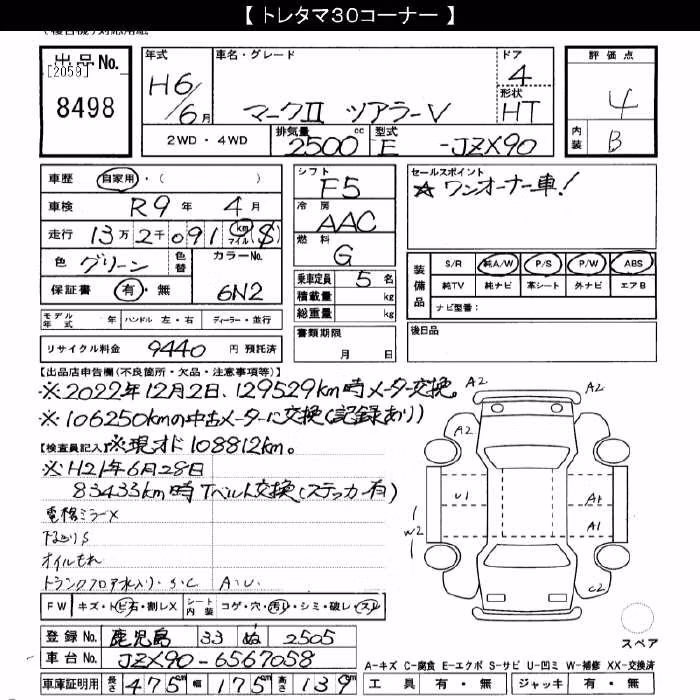 【 トレタマ30コーナー 】
出品No.
[2059]
8498
年式
H6/6月
車名・グレード
マークII ツアラーV
ドア
4
形状
HT
評価点
4
内装
B
2WD・4WD
排気量
2500 cc
型式
E -JZX90
車歴 自家用・( )
車検 R9年 4月
走行 13万2千091 km マイル $
色 グリーン 色替 カラーNo. 6N2
保証書 有・無
モデル年式 年 ハンドル 左・右 ディーラー・並行
リサイクル料金 9440 円 預託済
シフト
F5
冷房
AAC
燃料
G
乗車定員 5名
積載量 kg
総重量 kg
書類期限
月 日
セールスポイント
☆ワンオーナー車!
装備品
S/R 純A/W P/S P/W ABS
純TV 純ナビ 革シート 外ナビ エアB
ナビ型番:
後日品
【出品店申告欄(不良箇所・欠品・注意事項等)】
※2022年12月2日、129529km時メーター交換。
※106250kmの中古メーターに交換(記録あり)
【検査員記入】※現オド108812km。
※H21年6月28日
83433km時Tベルト交換(ステッカー有)
電格ミラーX
下廻りS
オイルもれ
トランクフロア水入り・S・C A・U
FW キズ・トビ石・割レX シート内装 コゲ・穴・汚レ・シミ・破レ・スレ
登録No. 鹿児島 33 ぬ 2505
車台No. JZX90-6567058
車庫証明用 長さ 475cm 幅 175cm 高さ 139cm
A2
A2
A2
U1
A1
W2
A1
C2
スペア
A-キズ C-腐食 E-エクボ S-サビ U-凹ミ W-補修 XX-交換済
工具 有・無 ジャッキ 有・無